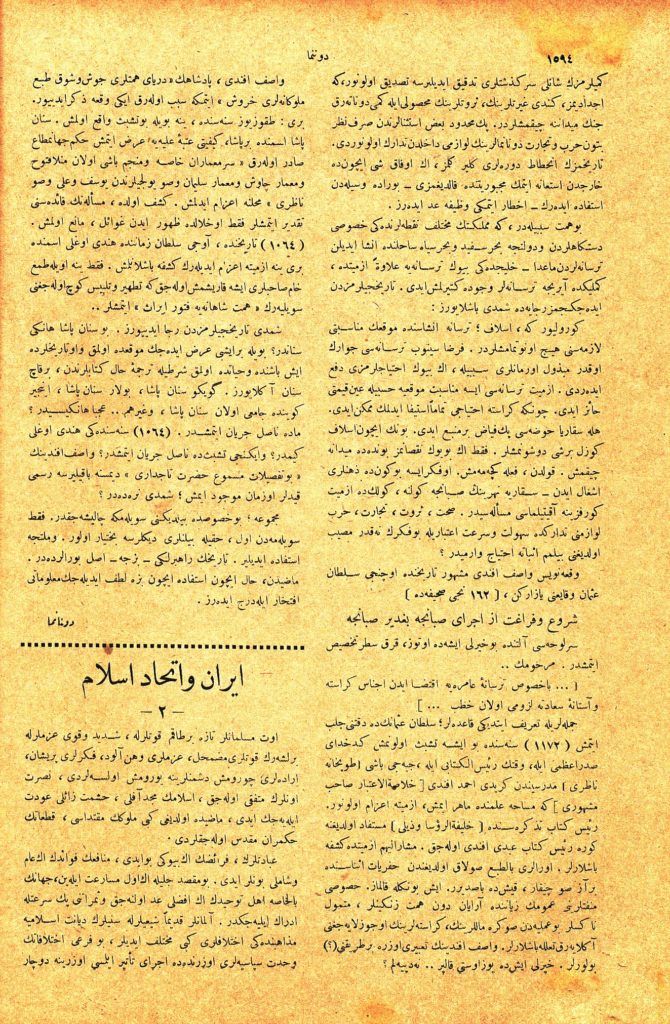 ١٥٩٤
دونما
كميلرمزك شانلى سركذشتلرى تدقيق ايديلیرسه تصديق اولونور، كه
اجداديمز، كندى غيرتلرينك، ثروتلرينك محصولى ايله كمى دوناتهرق
جنك ميداننه چيقمشلردر. پك محدود بعض استثنالردن صرف نظر
بتون حرب و تجارت دونمالرينك لوازمى داخلدن تدارك اولونوردى.
تاريخمزك انحطاط دورهلرى كلير كلمز، اك اوفاق شى ايچون ده
خارجدن استعانه ايتمك مجبوريتنده قالديغمزى ـ بوراده وسيلهدن
استفاده ايدهرك ـ اخطار ايتمكى وظيفه عد ايدهرز.
بوهمت سبيلهدر، كه مملكتك مختلف نقطهلرنده كى خصوصى
دستكاهلردن و دولتجه بحر سفيد و بحر سياه ساحلنده انشا ايديلن
ترسانهلردن ماعدا ـ خليجدهكى بيوك ترسانهيه علاوةً ازميتده ،
كمليكده آيريجه ترسانهلر وجوده كتيرلمش ايدى . تاريخجيلرمزدن
ايدهجكمز رجايهده شمدى باشلايورز :
كورولیور كه، اسلاف؛ ترسانه انشاسنده موقعك مناسبتى
لازمهسنى هيچ اونوتمامشلردر . فرضا سينوب ترسانهسى جوارك
اوقدر مبذول اورمانلرى سبيله ، اك بيوك احتياجلرمزى دفع
ايدهردى . ازميت ترسانهسى ايسه مناسبت موقعيه حسبيله عين قيمتى
حائز ايدى. چونكه كراسته احتياجى تماماً استيفا ايدلمك ممكن ايدى.
هله سقاريا حوضهسى پك فياض بر منبع ايدى . بونك ايچون اسلاف
كوزل برشى دوشونمشلر . فقط اك بويوك نقصانمز بونده ده ميدانه
چيقمش . قولدن ، فعله كچهمهمش. او فكر ايسه بوكون ده ذهنلرى
اشغال ايدن ـ سقاريه نهرينك صبانجه كولنه ، كولك ده ازميت
كورفزينه آقيتيلماسى مسألهسيدر . صحت ، ثروت ، تجارت ، حرب
لوازمنى تداركده سهولت و سرعت اعتباريله بوفكرك نهقدر مصيب
اولديغنى بيلمم اثباته احتياج وارميدر ؟
وقعهنويس واصف افندى مشهور تاريخنده اوچنجى سلطان
عثمان وقايعنى يازاركن ، ( ١٦٢ نجى صحيفهده )
شروع و فراغت از اجراى صبانجه بغدير صبانجه
سرلوحهسى آلتنده بو خيرلى ايشه ده اوتوز، قرق سطر تخصيص
ايتمشدر . مرحومك ..
[ ... باخصوص ترسانهٔ عامرهيه اقتضا ايدن اجناس كراسته
و آستانهٔ سعادته لزومى اولان خطب ... ]
جملهلريله تعريف ايتديكى فائدهلر؛ سلطان عثمانك ده دقتنى جلب
ايتمش ( ١١٧٢ ) سنهسنده بو ايشه تشبث اولونمش كدخداى
صدر اعظمى ايله، وقتك رئيس الكتابى ايله، جبهجى باشى (طوپخانه
ناظرى) مدرسيندن كريدى احمد افندى [ خلاصةالاعتبار صاحب
مشهورى ] كه مساحه علمنده ماهر ايمش، ازميته اعزام اولونور.
رئيس كتاب تذكرهسنده [ خليفةالرؤسا و ذيلى ] مستفاد اولديغنه
كوره رئيس كتاب عبدى افندى اولهجق . مشاراليهم ازميتده كشفه
باشلارلر . اورالرى بالطبع صولاق اولديغندن حفريات اثناسنده
برآز صو چيقار ، قيش ده باصديرر. ايش بونكله قالماز. خصوصى
منفعتلرينى عمومك زياننده آرايان دون همت زنكينلر ، متمول
ناكسلر بوعمليهدن صوكره ماللرينك، كراستهلرينك اوجوزلايهجغنى
آكلايهرق تعلله باشلارلر. واصف افندينك تعبيرى اوزره بر طريقنى(؟)
بولورلر . خيرلى ايش ده يوز اوستى قالير .. نه دييهلم ؟
واصف افندى ، پادشاهك « درياى همتلرى جوش و شوق طبع
ملوكانهلرى خروش » ايتمكه سبب اولهرق ايكى وقعه ذكر ايدييور.
برى : طقوزيوز سنهسنده ، ينه بويله بر تشبث واقع اولمش . سنان
پاشا اسمنده برپاشا، كيفيتى عتبهٔ عليهيه عرض ايتمش حكم جهانمطاع
صادر اولهرق « سر معماران خاصه و منجم باشى اولان منلا فتوح
و معمار چاوش و معمار سلمان و صو يولجيلرندن يوسف و على و صو
ناظرى » محلنه اعزام ايدلمش . كشف اولده ، مسألهنك فائدهسنى
تقدير ايتمشلر فقط او خلالده ظهور ايدن غوائل ، مانع اولمش .
( ١٠٦٤ ) تاريخنده ، آوجى سلطان زماننده هندى اوغلى اسمنده
برى ينه ازميته اعزام ايديلهرك كشفه باشلاتلمش. فقط ينه اويله طمع
خام صاحبلرى ايشه قاريشمش اولهجق كه تطهير و تلييس كوچ اولهجغنى
سويليهرك « همت شاهانهيه فتور ايراث » ايتمشلر ..
شمدى تاريخجيلرمزدن رجا ايدييورز . بو سنان پاشا هانكى
سناندر؟ بويله بر ايشى عرض ايدهجك موقعده اولمق و او تاريخلرده
ايش باشنده و حياتده اولمق شرطيله ترجمهٔ حال كتابلرندن ، برقاچ
سنان آكلايورز . كويكو سنان پاشا ، بولار سنان پاشا ، انجير
كوينده جامعى اولان سنان پاشا ، وغيرهم .. عجبا هانكيسيدر ؟
ماده ناصل جريان ايتمشدر . (١٠٦٤) سنهسنده كى هندى اوغلى
كيمدر؟ و ايكنجى تشبث ده ناصل جريان ايتمشدر؟ واصف افندينك
« بوتفصيلات مسموع حضرت تاجدارى » ديمسنه باقيليرسه رسمى
قيدلر اوزمان موجود ايمش؛ شمدى نرهدهدر ؟
مجموعه ؛ بوخصوصده بيلديكنى سويلهمكه چاليشهجقدر. فقط
سويلهمهدن اول ، حقيله بيلنلرى ديكلرسه بختيار اولور . و ملتجه
استفاده ايديلير . تاريخك راهبرلكى ـ بزجه ـ اصل بورالردهدر .
ماضيدن، حال ايچون استفاده ايچون بزه لطف ايديلهجك معلوماتى
افتخار ايله درج ايدهرز .
دونما
ايران و اتحاد اسلام
ـ ٢ ـ
اوت مسلمانلر تازه بر طاقم قوتلرله ، شديد و قوى عزملرله
برلشهرك قوتلرى مضمحل، عزملرى وهنآلود، فكرلرى پريشان،
ارادهلرى چورومش دشمنلرينه يورومش اولسهلردى ، نصرت
اونلرك متفق اولهجق ، اسلامك مجد آفلى ، حشمت زائلى عودت
ايلهيهجك ايدى ، ماضيده اولديغى كبى ملوكك مقتداسى ، قطعاتك
حكمران مقدسى اولهجقلردى .
عبادتلرك ، فرائضك اك بيوكى بو ايدى ، منافعك فوائدك اك عام
و شاملى بونلر ايدى . بومقصد جليله اك اول مسارعت ايلهين، جهانك
بالخاصه اهل توحيدك اك افضلى عد اولنهجق و ثمراتنى پك سرعتله
ادراك ايليهجكدر . آلمانلر قديماً شيعيلرله سنيلرك ديانت اسلاميه
مذاهبندهكى اختلافلرى كبى مختلف ايديلر ، بو فرعى اختلافاتك
وحدت سياسيهلرى اوزرنده ده اجراى تأثير ايلمسى اوزرينه دوچار